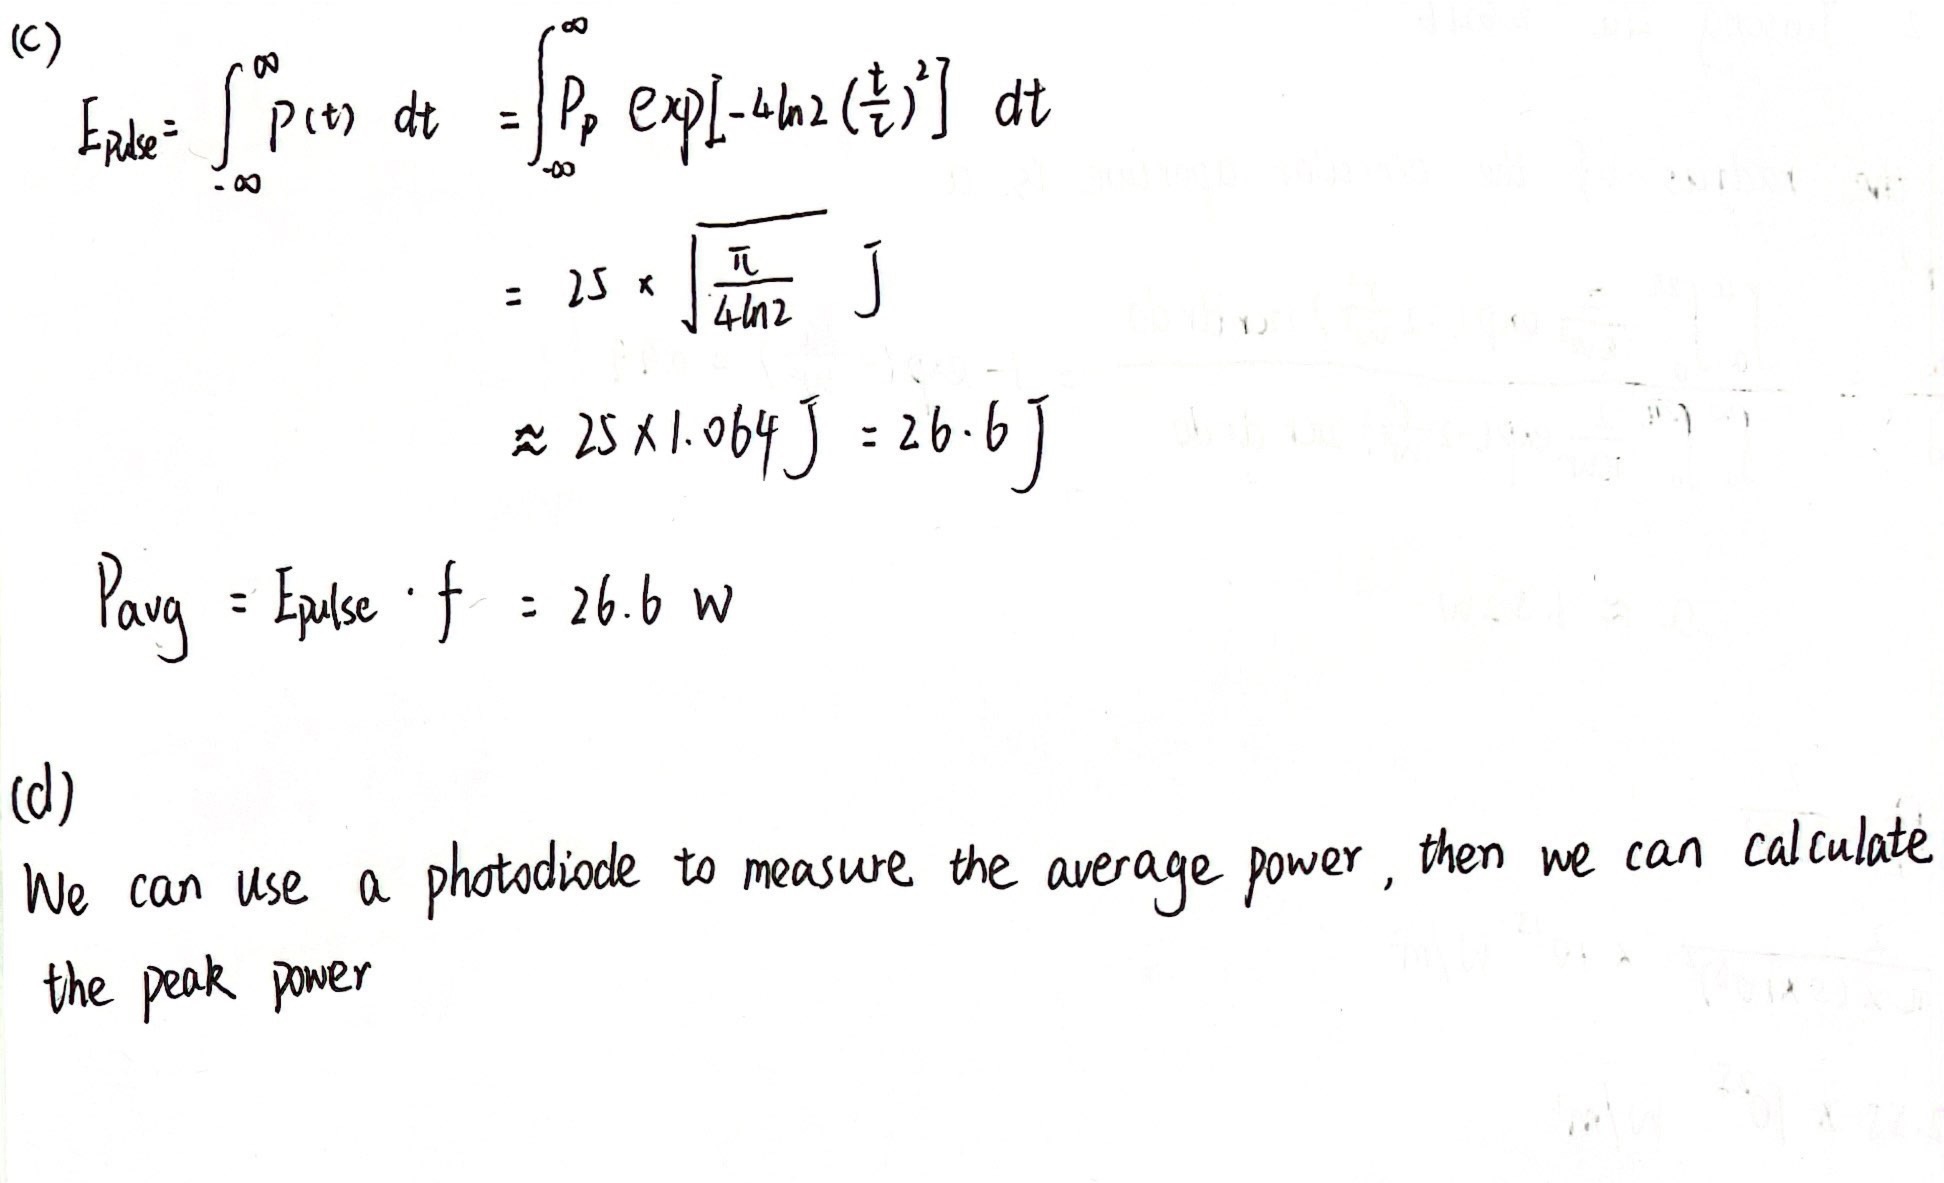 (c)
Epulse = ∫_{-∞}^{∞} P(t) dt = ∫_{-∞}^{∞} P_p exp[-4ln2 (t/τ)^2] dt
= 25 × √(π/(4ln2)) J
≈ 25 × 1.064 J = 26.6 J
Pavg = Epulse · f = 26.6 W
(d)
We can use a photodiode to measure the average power, then we can calculate
the peak power